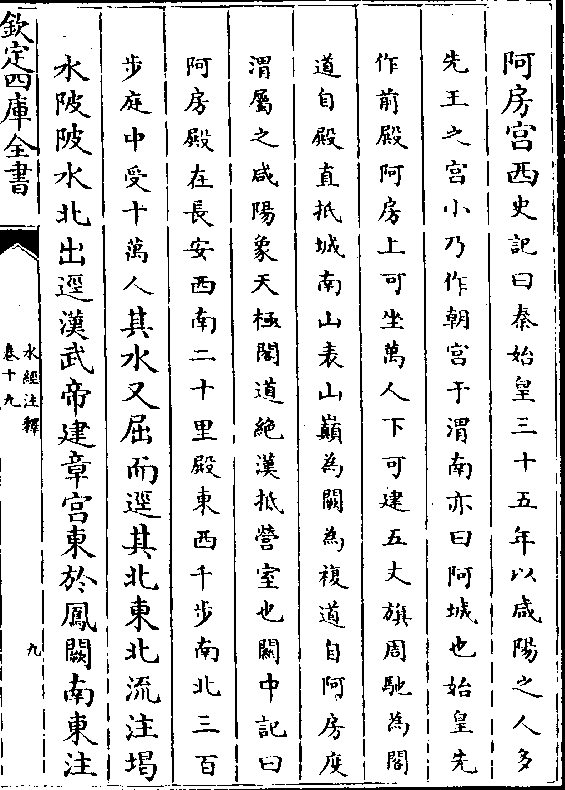 阿房宫西史記曰秦始皇三十五年以咸陽之人多
先王之宫小乃作朝宫于渭南亦曰阿城也始皇先
作前殿阿房上可坐萬人下可建五丈旗周馳為閣
道自殿直抵城南山表山巔為闕為複道自阿房度
渭屬之咸陽象天極閣道絶漢抵營室也關中記曰
阿房殿在長安西南二十里殿東西千步南北三百
步庭中受十萬人其水又屈而逕其北東北流注堨
水陂陂水北出逕漢武帝建章宫東於鳳闕南東注
欽定四庫全書
水經注釋
卷十九
九